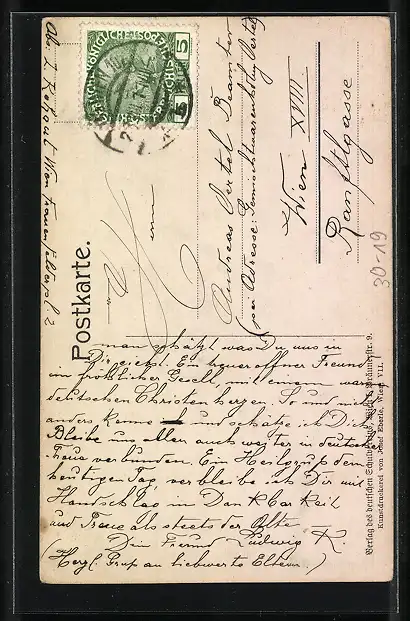 Postkarte.
Herrn
Andreas Oertel Beamter
(per Adresse: Gemischtwarenhdlg. Oertel
Wien XVIII.
Ranftlgasse
30-19
Ab: L. Wien 2
5 5
man schätzt was Du uns in
Dir eichst. Ein treuer offner Freund
ein fröhlicher Gesell, mit einem warm
deutschen Christenherzen. So und nicht
anders kenne ich und schätze ich Dich
Bleibe uns allen auch weiter in deutscher
Treue verbunden. Ein Heilgruß dem
heutigen Tag verbleibe ich Dir mit
Handschlag in Dankbarkeit
und Treue als stets der Alte
Dein Freund Ludwig K.
(Herzl. Gruß an liebwerte Eltern.)
Verlag des deutschen Schulvereins, Wien, Bräunerstr. 9.
Kunstdruckerei von Josef Eberle, Wien VII.